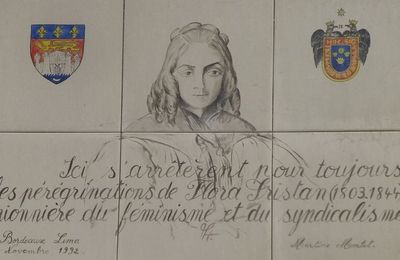 Ici s'arrêtèrent pour toujours
les pérégrinations de Flora Tristan (1803.1844
ionnière du féminisme et du syndicalisme
Bordeaux Lima
Novembre 1992
Martine